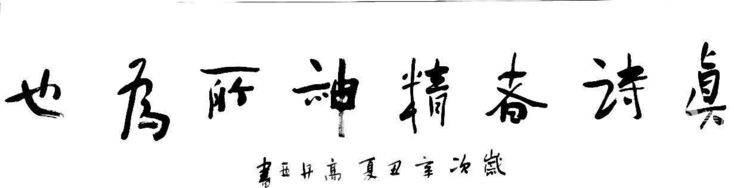 真詩者精神所為也
歲次辛丑夏高丹亞書